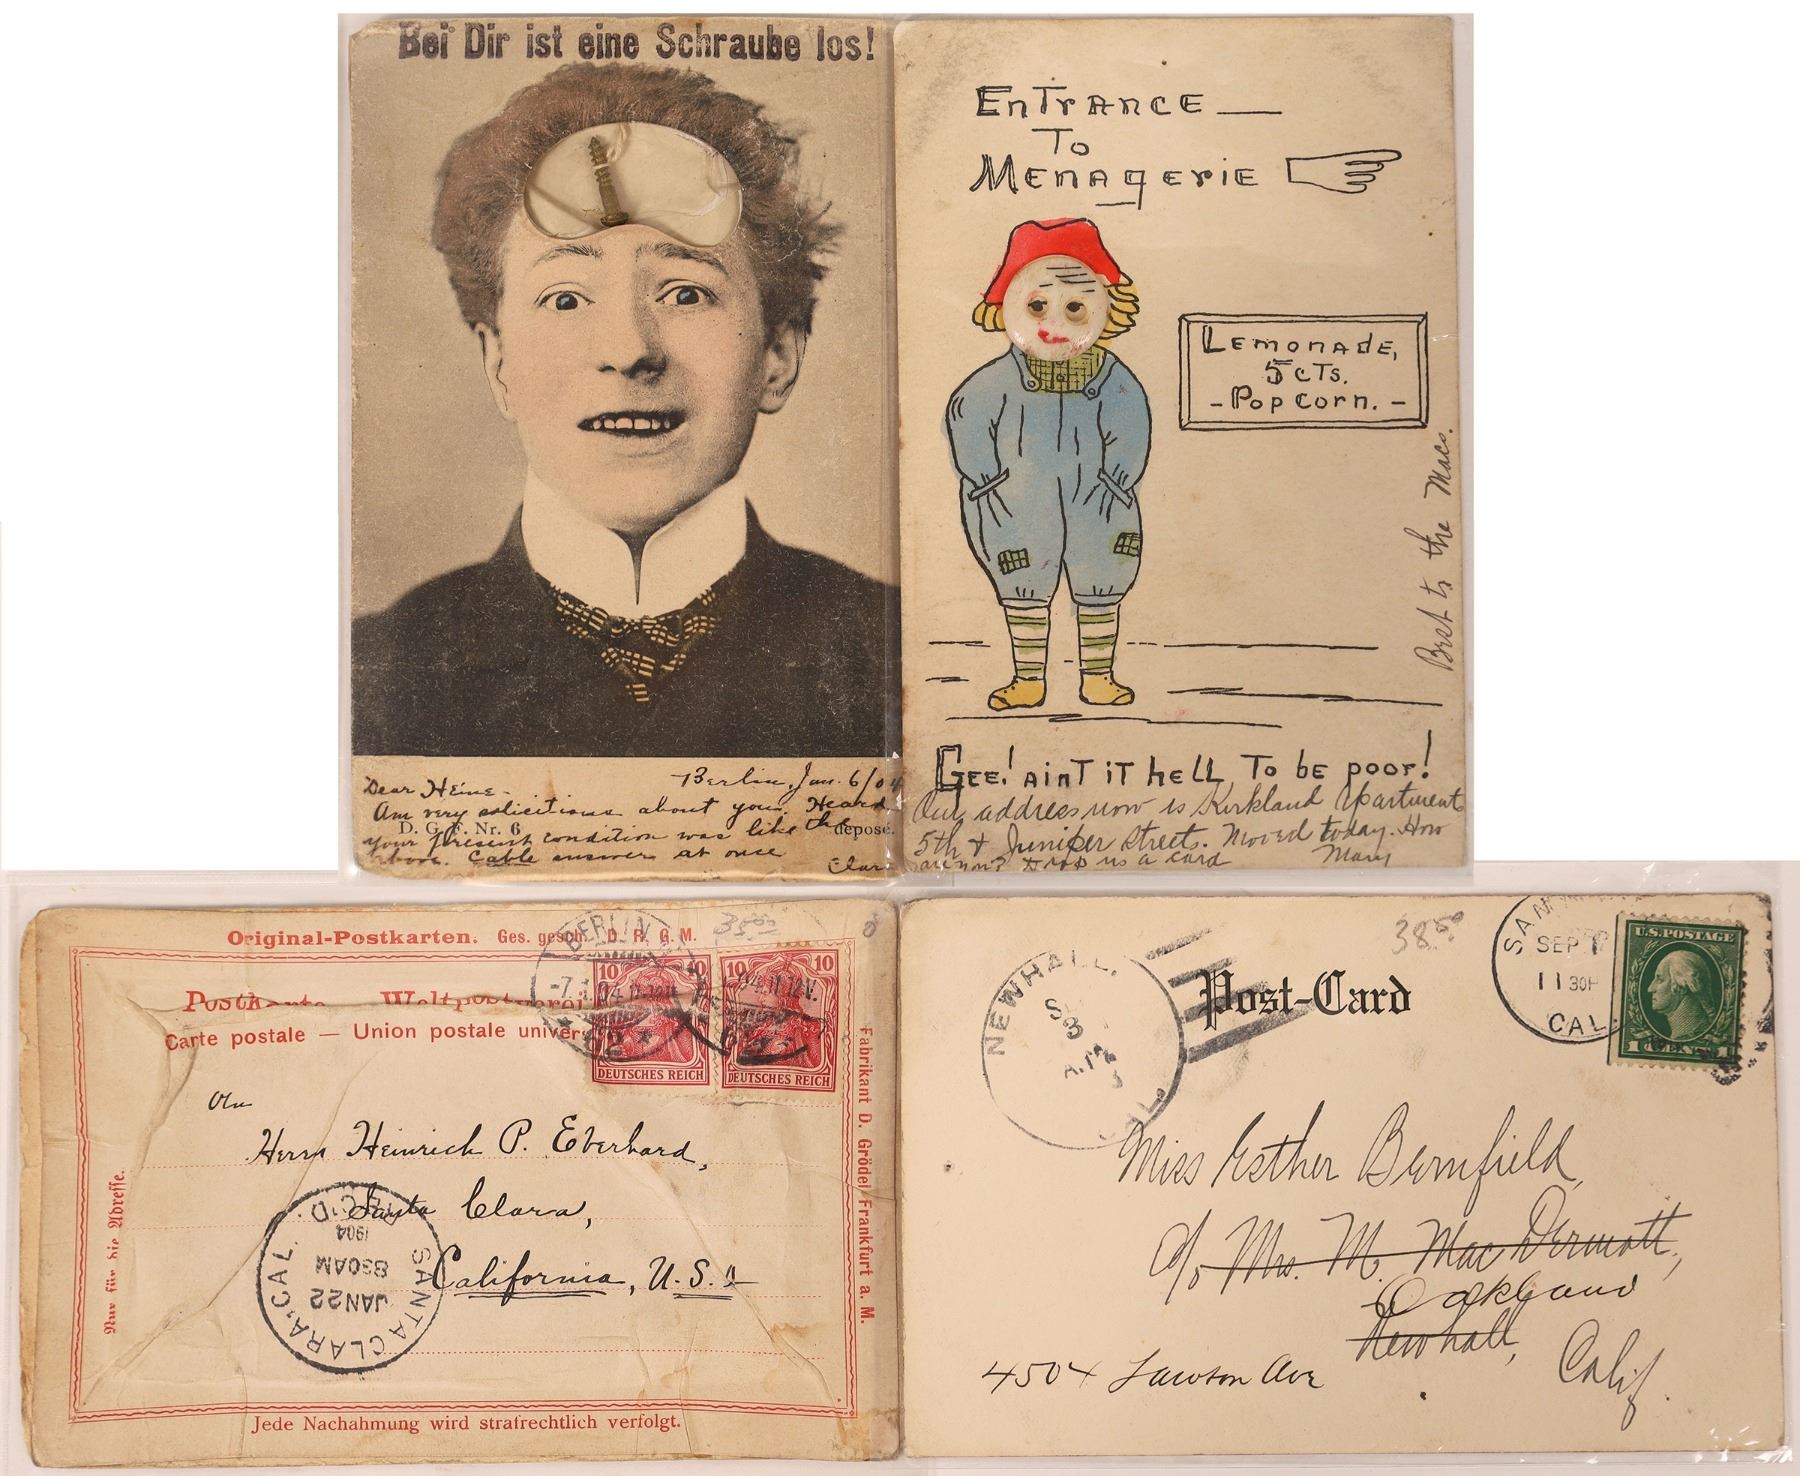 Bei Dir ist eine Schraube los!
Dear Heine -
Berlin, Jan. 6/04
Am very solicitious about you. Heard
D. G. F. Nr. 6
depose.
your present condition was like the
above. Cable answer at once
Clar
EnTrANCE —
To
MENAgeriE
LEMONAdE,
5 cTs.
- Pop corn. -
Best to the Macs.
GEE! AinT iT hELL To be poor!
Our address now is Kirkland Apartments
5th & Juniper Streets. Moved today. How
are you? Drop us a card
Mary
Original-Postkarten. Ges. gesch. D. R. G. M.
38.00
Postkarte Weltpostverei
Carte postale — Union postale univers
BERLIN
-7. 1. 04. 11-12V.
10 10
DEUTSCHES REICH
10 10
DEUTSCHES REICH
An
Herrn Heinrich P. Eberhard,
Santa Clara,
California, U.S.A
SANTA CLARA, CAL.
JAN 22
830AM
1904
REC'D.
Nur für die Adresse.
Fabrikant D. Grödel Frankfurt a. M.
Jede Nachahmung wird strafrechtlich verfolgt.
NEWHALL.
S 3
CAL.
Post-Card
38.00
SAN
SEP 1
11 30P
CAL.
U.S. POSTAGE
1 CENT 1
Miss Esther Bernfield,
c/o Mrs. M. MacDermott,
Oakland
Newhall,
Calif.
4504 Lawton Ave